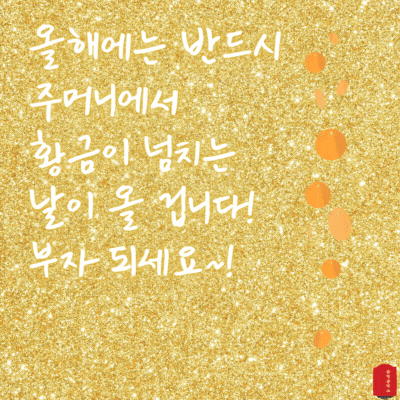 올해에는 반드시
주머니에서
황금이 넘치는
날이 올 겁니다!
부자 되세요~!